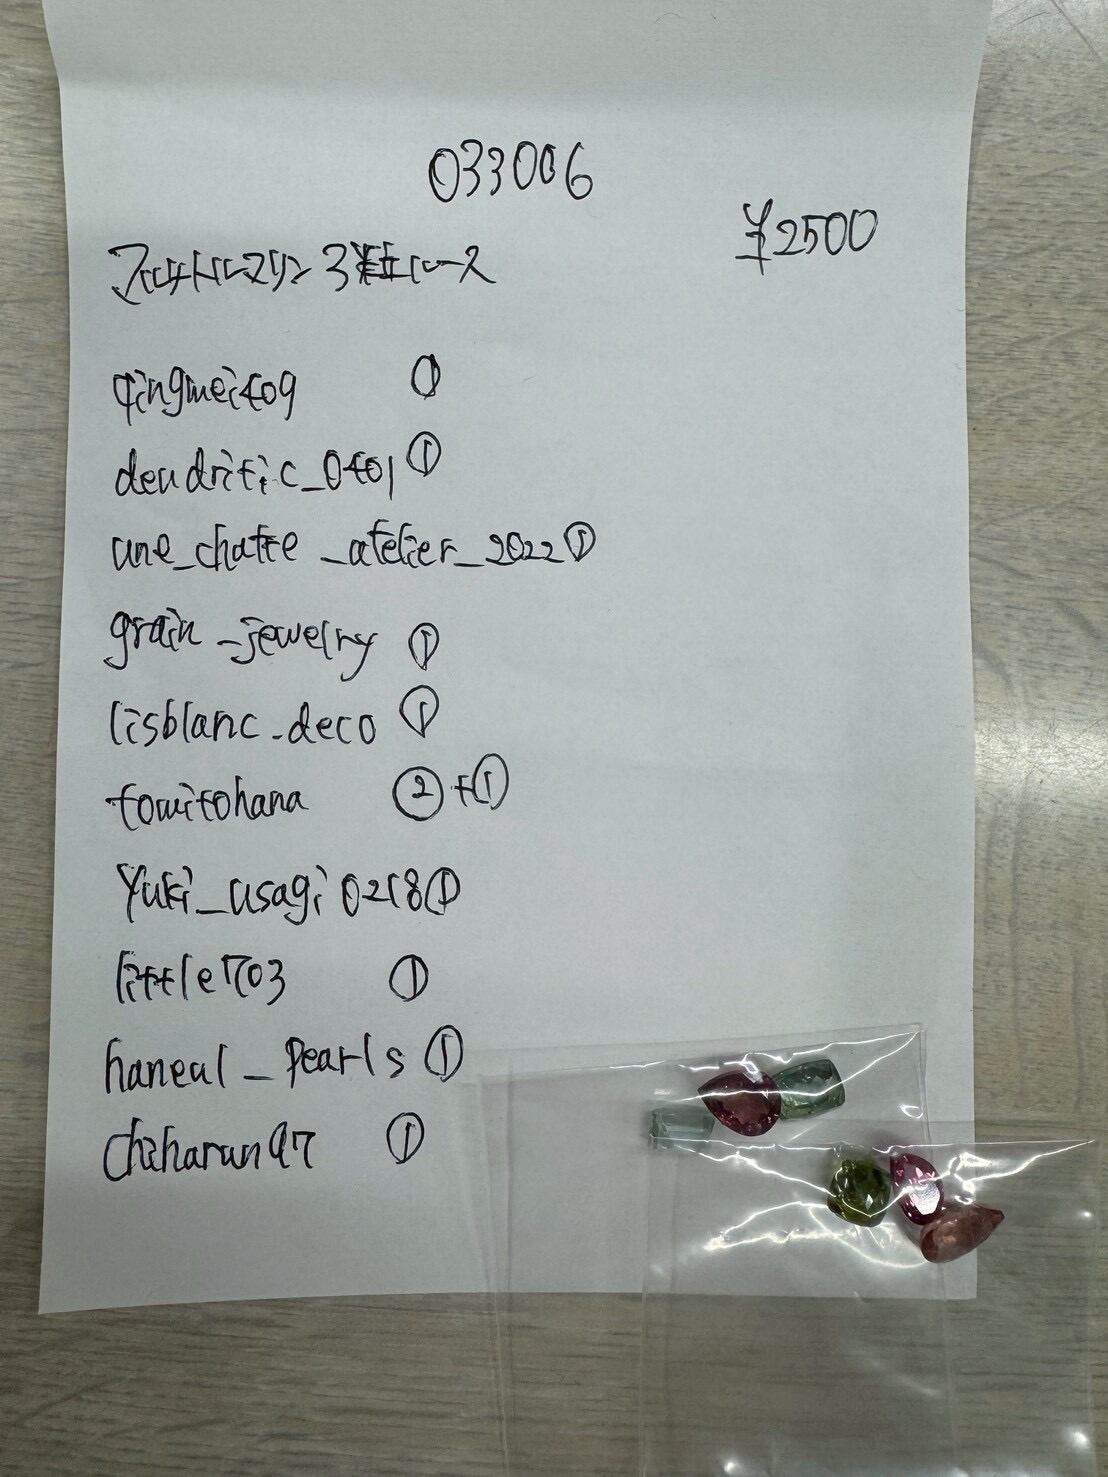 033006
¥2500
マルチトルマリン3粒ルース
qingmei409 ①
dendritic_0401 ①
une_chatte_atelier_2022 ①
grain_jewelry ①
lisblanc_deco ①
tomitohana ②+①
Yuki_usagi0218 ①
little1703 ①
haneul_pearls ①
chiharun97 ①